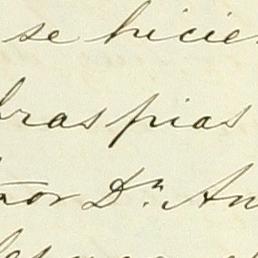 se hicie
bras pias
ñor Dn. An